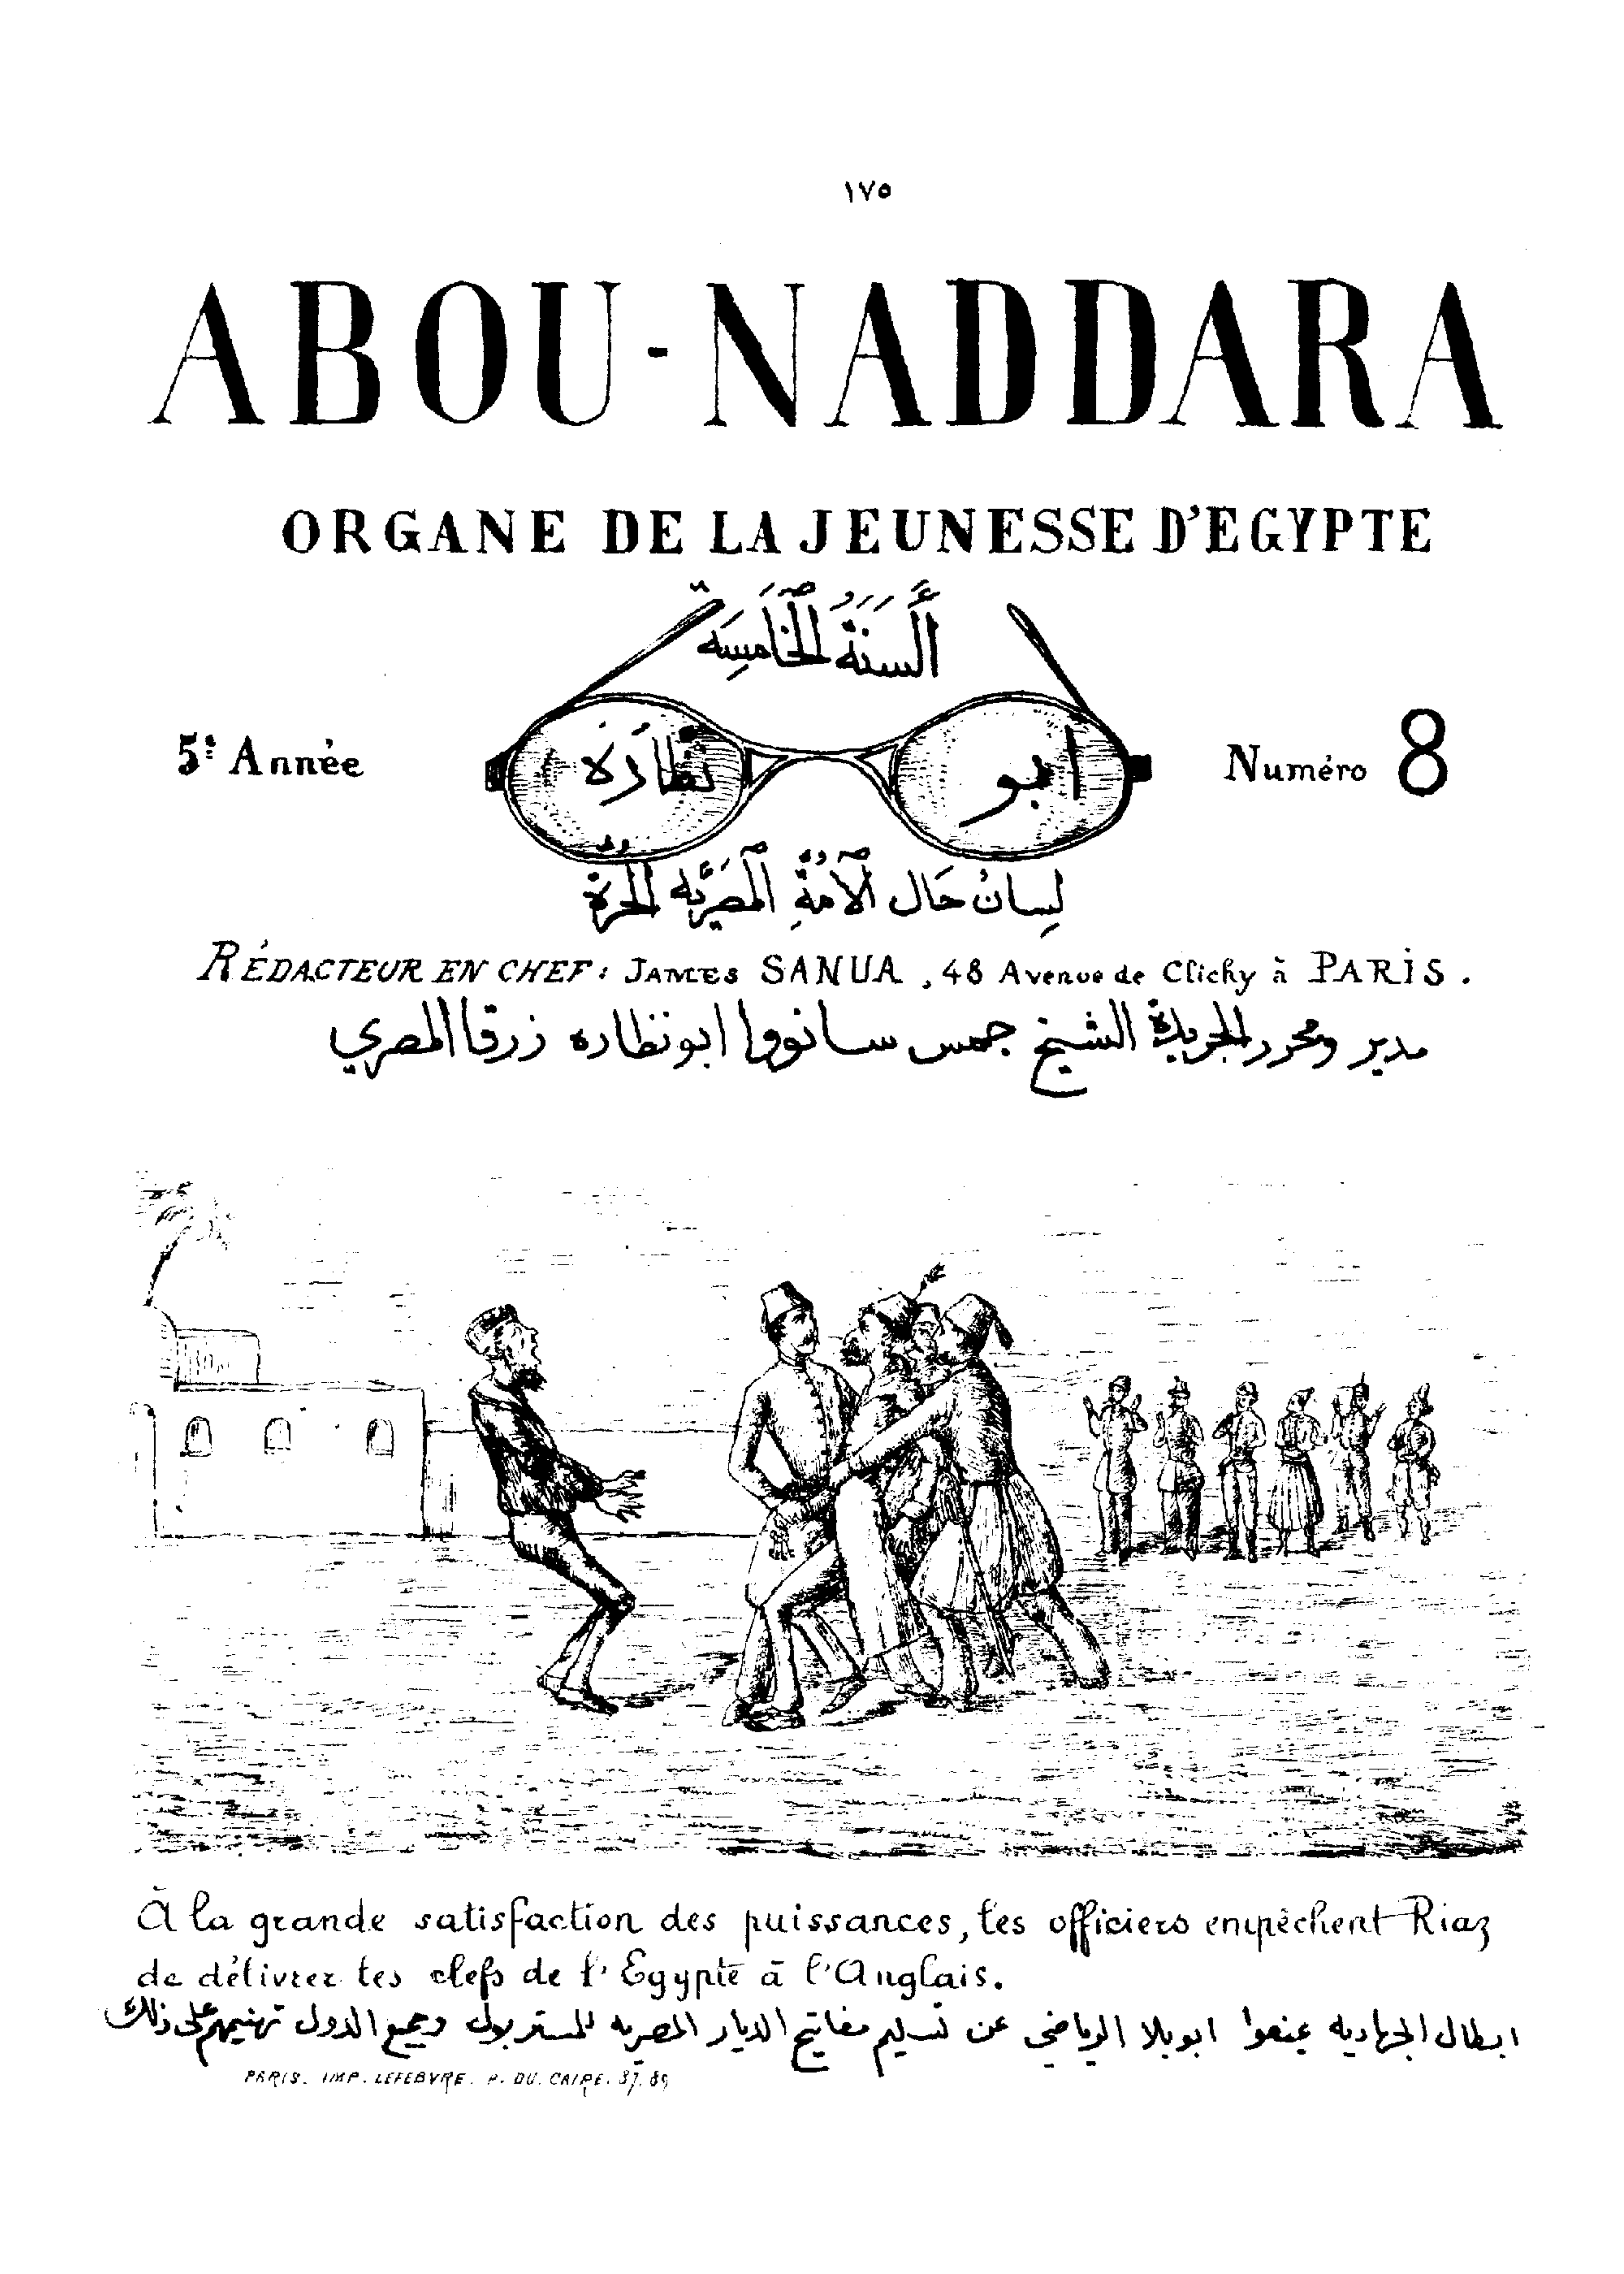 ١٧٥
ABOU-NADDARA
ORGANE DE LA JEUNESSE D'EGYPTE
أَلسنَةُ الخَامِسَة
5ᵉ Année
ابو نظارة
Numéro 8
لِسانُ حَال الأمَّةِ المصريَّه الحُرَّة
RÉDACTEUR EN CHEF: JAMES SANUA, 48 Avenue de Clichy à PARIS.
مدير ومحرر الجريدة الشيخ جمس سانووا ابو نظاره زرقا المصري
À la grande satisfaction des puissances, les officiers empêchent Riaz
de délivrer les clefs de l'Egypte à l'Anglais.
ابطال الجهاديه عنعوا ابو بلا الرياضي عن تسليم مفاتيح الديار المصريه للمستر بول وجميع الدول تهنيهم على ذلك
PARIS. IMP. LEFEBVRE. P. DU. CAIRE. 87. 89